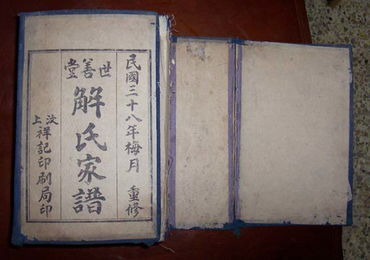 民國三十八年梅月 重修
世善堂
解氏家譜
汶上祥記印刷局印